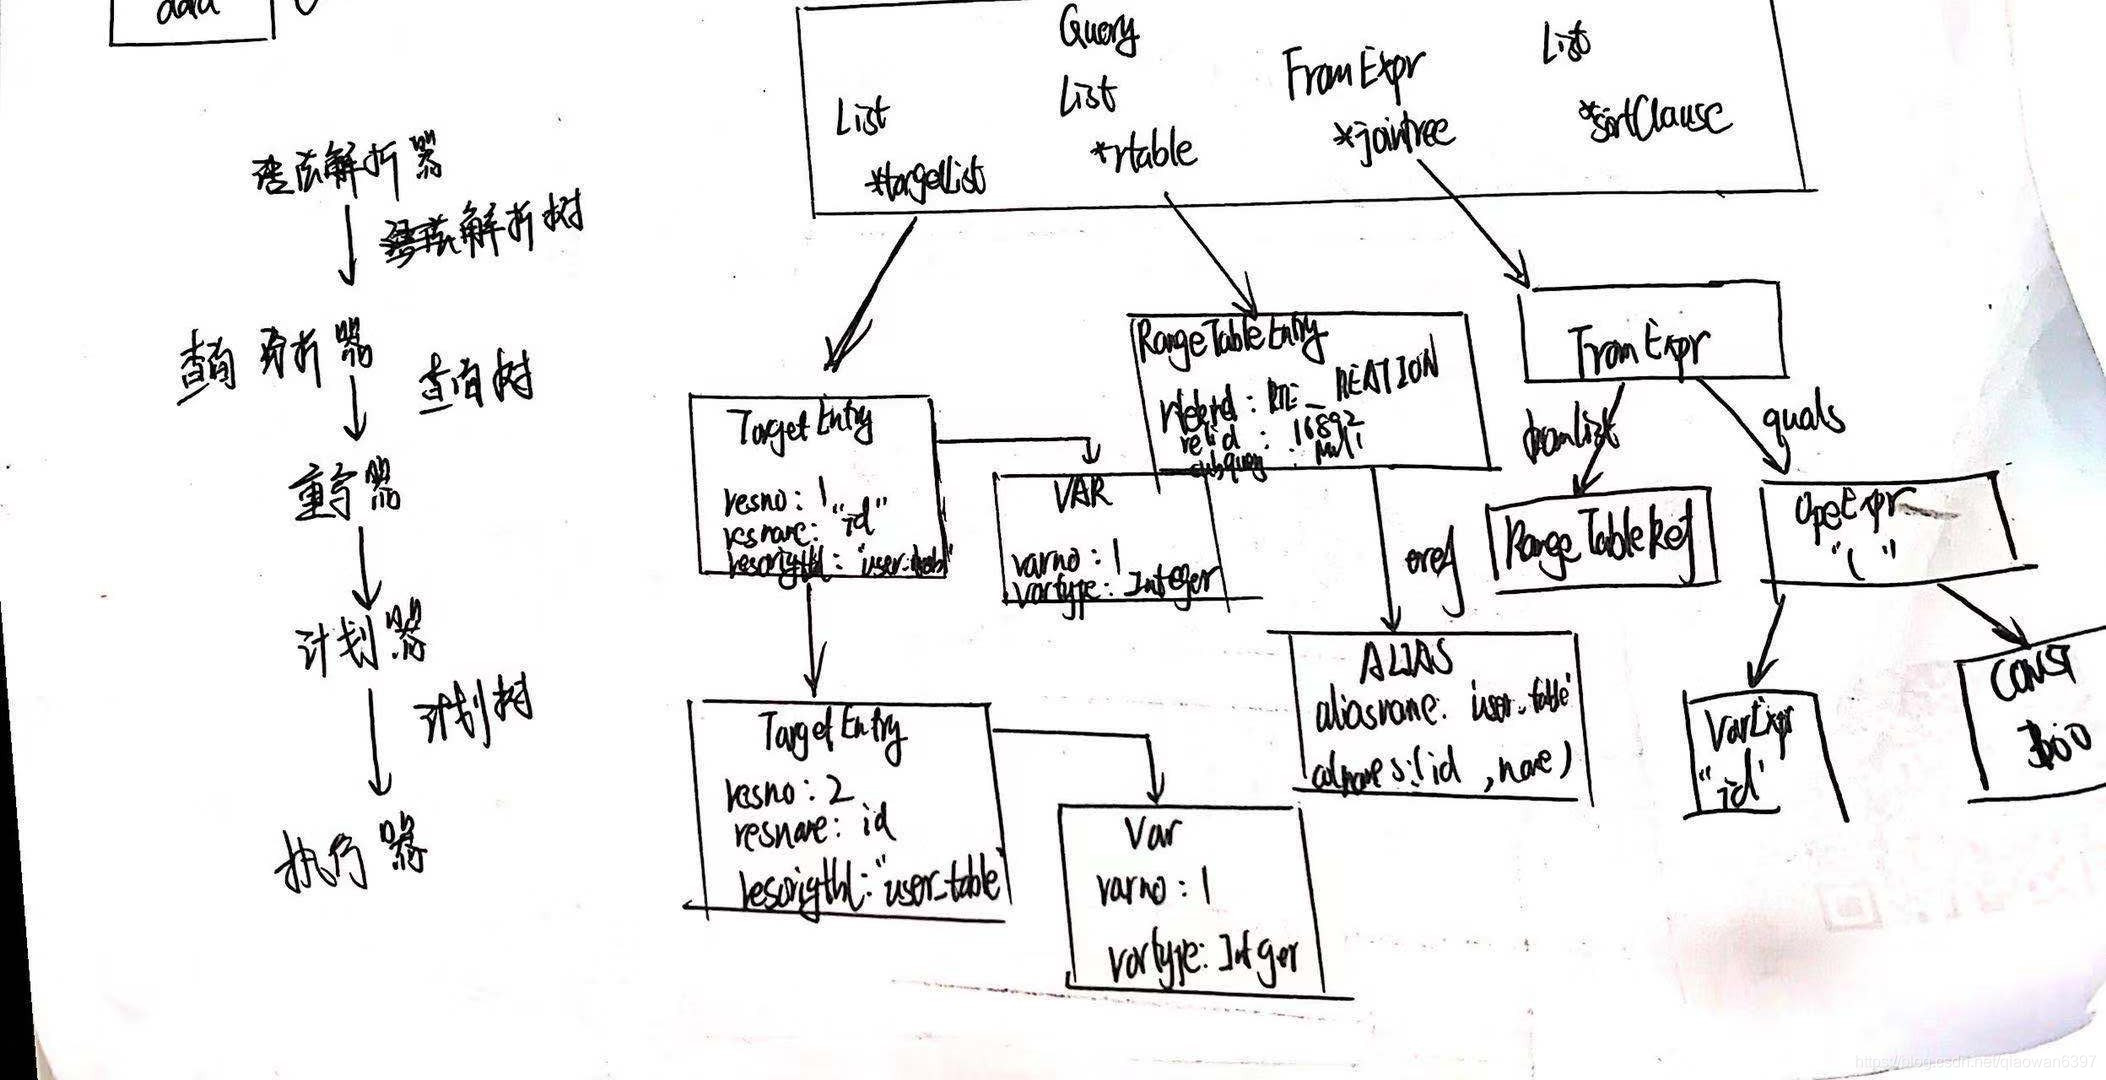 data
语法解析器
语法解析树
查询 分析器
查询树
重写器
计划器
计划树
执行器
Query
List
*targetList
List
*rtable
FromExpr
*jointree
List
*sortClause
TargetEntry
resno: 1
resname: "id"
resorigtbl:
VAR
varno: 1
vartype: Integer
TargetEntry
resno: 2
resname: id
resorigtbl: "user_table
Var
varno: 1
vartype: Integer
RangeTableEntry
RTE_REATION
relid: 16892
subquery:
eref
ALIAS
aliasname: 'user_table'
colnames: (id, name)
FromExpr
fromlist
quals
RangeTableRef
OpeExpr
VarExpr
"id'
CONST
https://blog.csdn.net/qiaowan6397